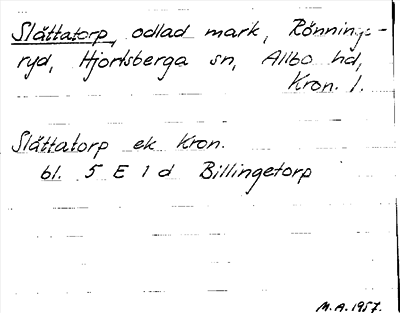 Slättatorp, odlad mark, Rönnings-
ryd, Hjortsberga sn, Allbo hd,
Kron. l.
Slättatorp ek Kron.
bl. 5 E 1 d Billingetorp
M.A. 1957.